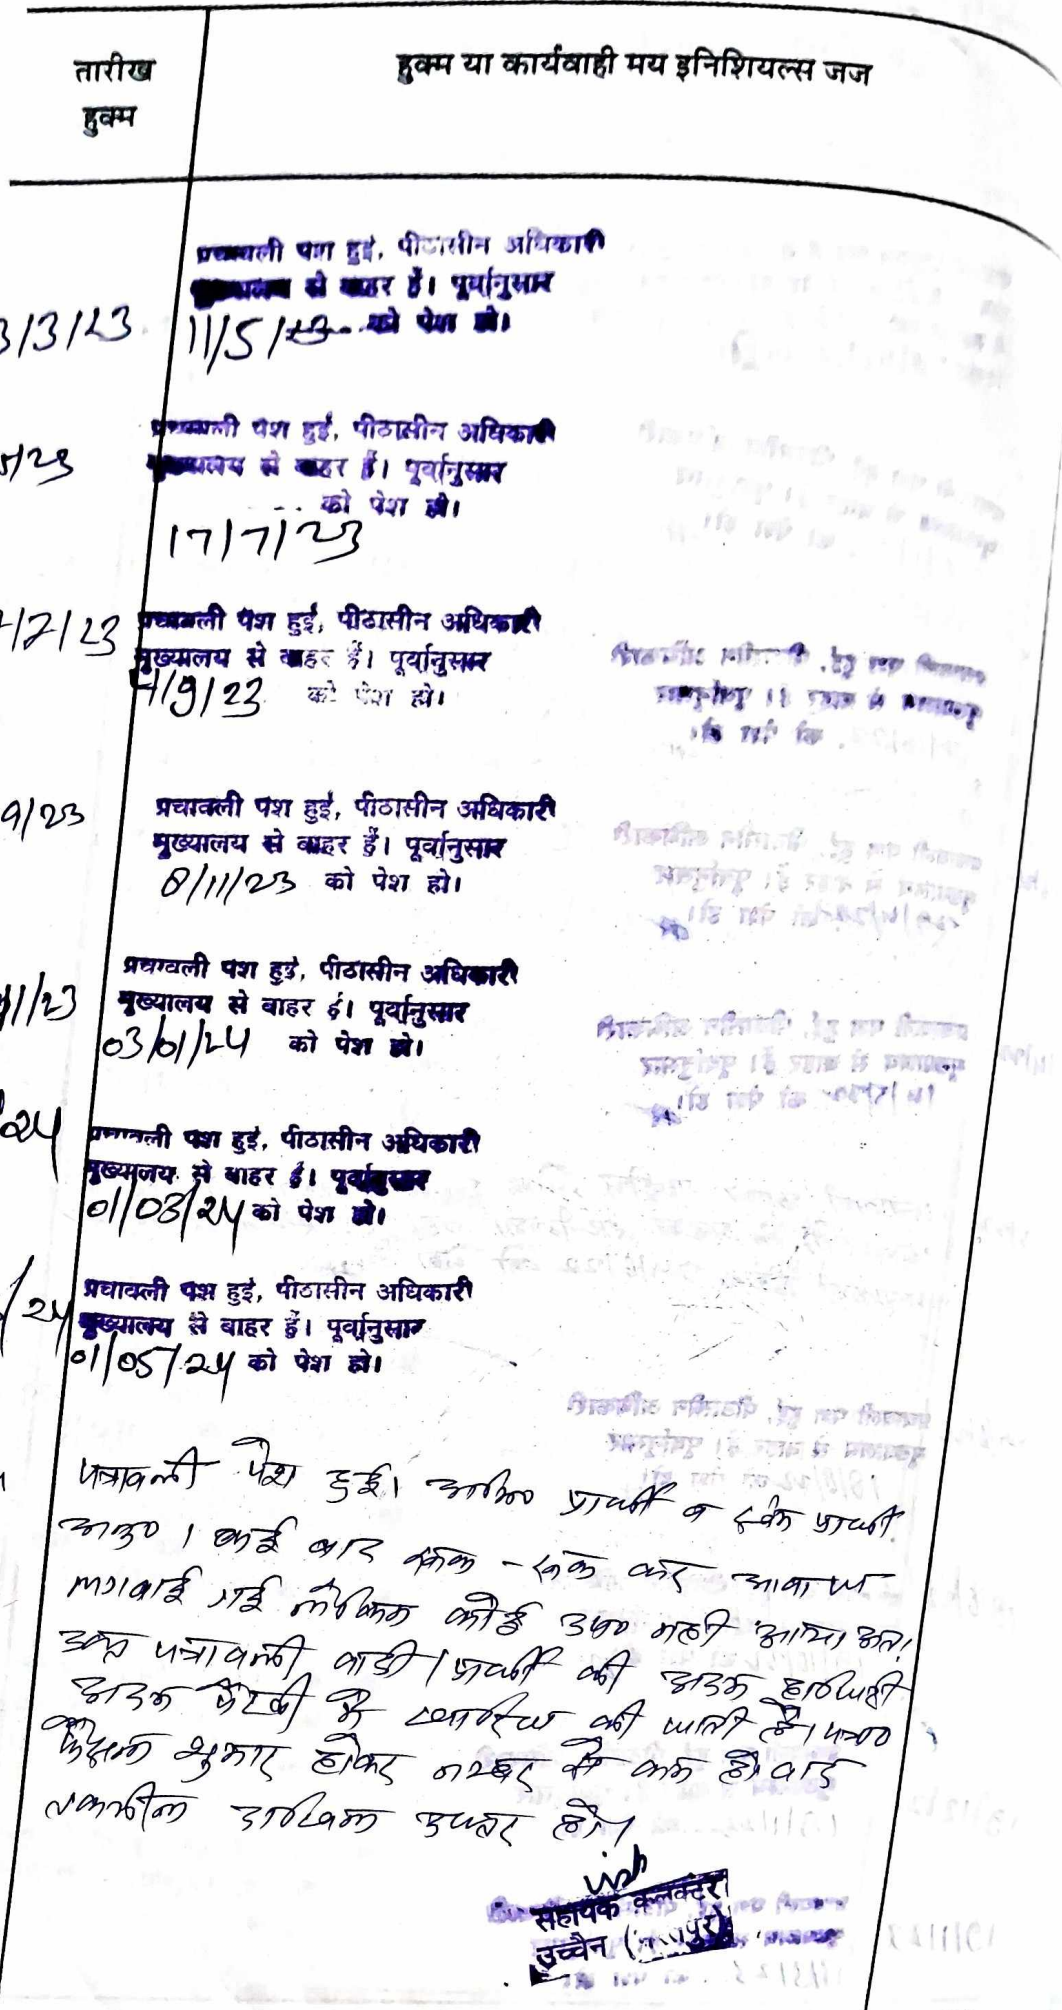 तारीख
हुक्म
हुक्म या कार्यवाही मय इनिशियल्स जज
पत्रावली पेश हुई, पीठासीन अधिकारी
मुख्यालय से बाहर हैं। पूर्वानुसार
3/3/23
11/5/23 को पेश हो।
पत्रावली पेश हुई, पीठासीन अधिकारी
5/23
मुख्यालय से बाहर हैं। पूर्वानुसार
को पेश हो।
17/7/23
/7/23
पत्रावली पेश हुई, पीठासीन अधिकारी
मुख्यालय से बाहर हैं। पूर्वानुसार
4/9/23 को पेश हो।
9/23
पत्रावली पेश हुई, पीठासीन अधिकारी
मुख्यालय से बाहर हैं। पूर्वानुसार
8/11/23 को पेश हो।
पत्रावली पेश हुई, पीठासीन अधिकारी
11/23
मुख्यालय से बाहर हैं। पूर्वानुसार
03/01/24 को पेश हो।
24
पत्रावली पेश हुई, पीठासीन अधिकारी
मुख्यालय से बाहर हैं। पूर्वानुसार
01/03/24 को पेश हो।
/24
पत्रावली पेश हुई, पीठासीन अधिकारी
मुख्यालय से बाहर हैं। पूर्वानुसार
01/05/24 को पेश हो।
पत्रावली पेश हुई। प्रार्थी व प्रार्थी
अनु० । कई बार रूक - रूक कर आवाज
लगवाई गई लेकिन कोई उप० नही आया। अतः
उक्त पत्रावली वादी / प्रार्थी की अदम हाजिरी
अदम पैरवी में खारिज की जाती है। पत्रा०
फैसल शुमार होकर नम्बर से कम हो। बाद
तकमील दाखिल दफ्तर हो।
सहायक कलक्टर
उच्चैन